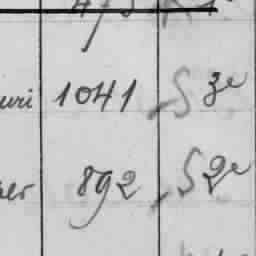 uri 1041 S 3e
er 892 S 2e